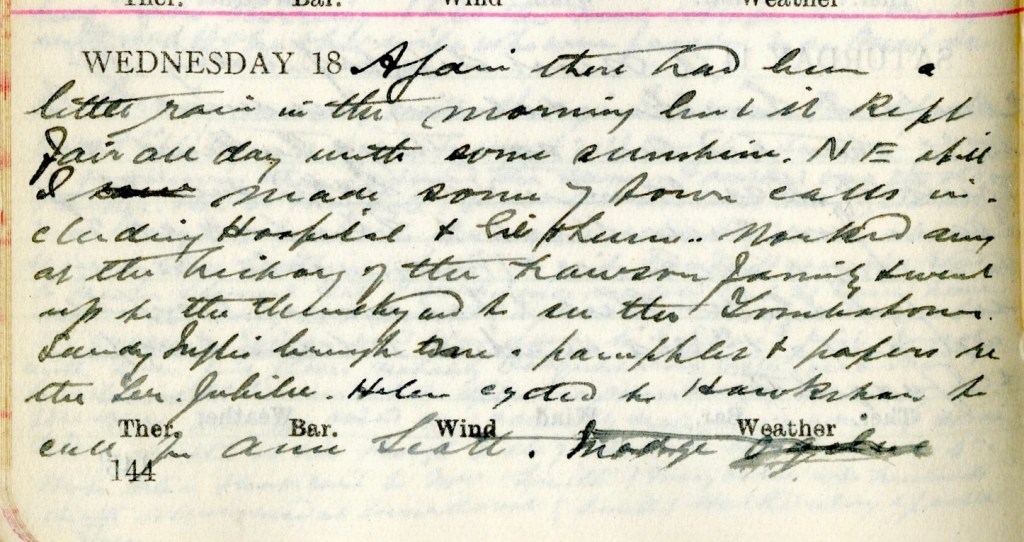 Ther. Bar. Wind Weather
WEDNESDAY 18 Again there had been a
little rain in the morning but it kept
fair all day with some sunshine. N E still
I made some of town calls in-
cluding Hospital & . Worked away
at the history of the Lawson family & went
up to the Churchyard to see the Tombstones.
Sandy brought some pamphlets & papers re
the Ter. Jubilee. Helen cycled to Hawkshaw to
Ther. Bar. Wind Weather
call for Ann Scott. Madge
144